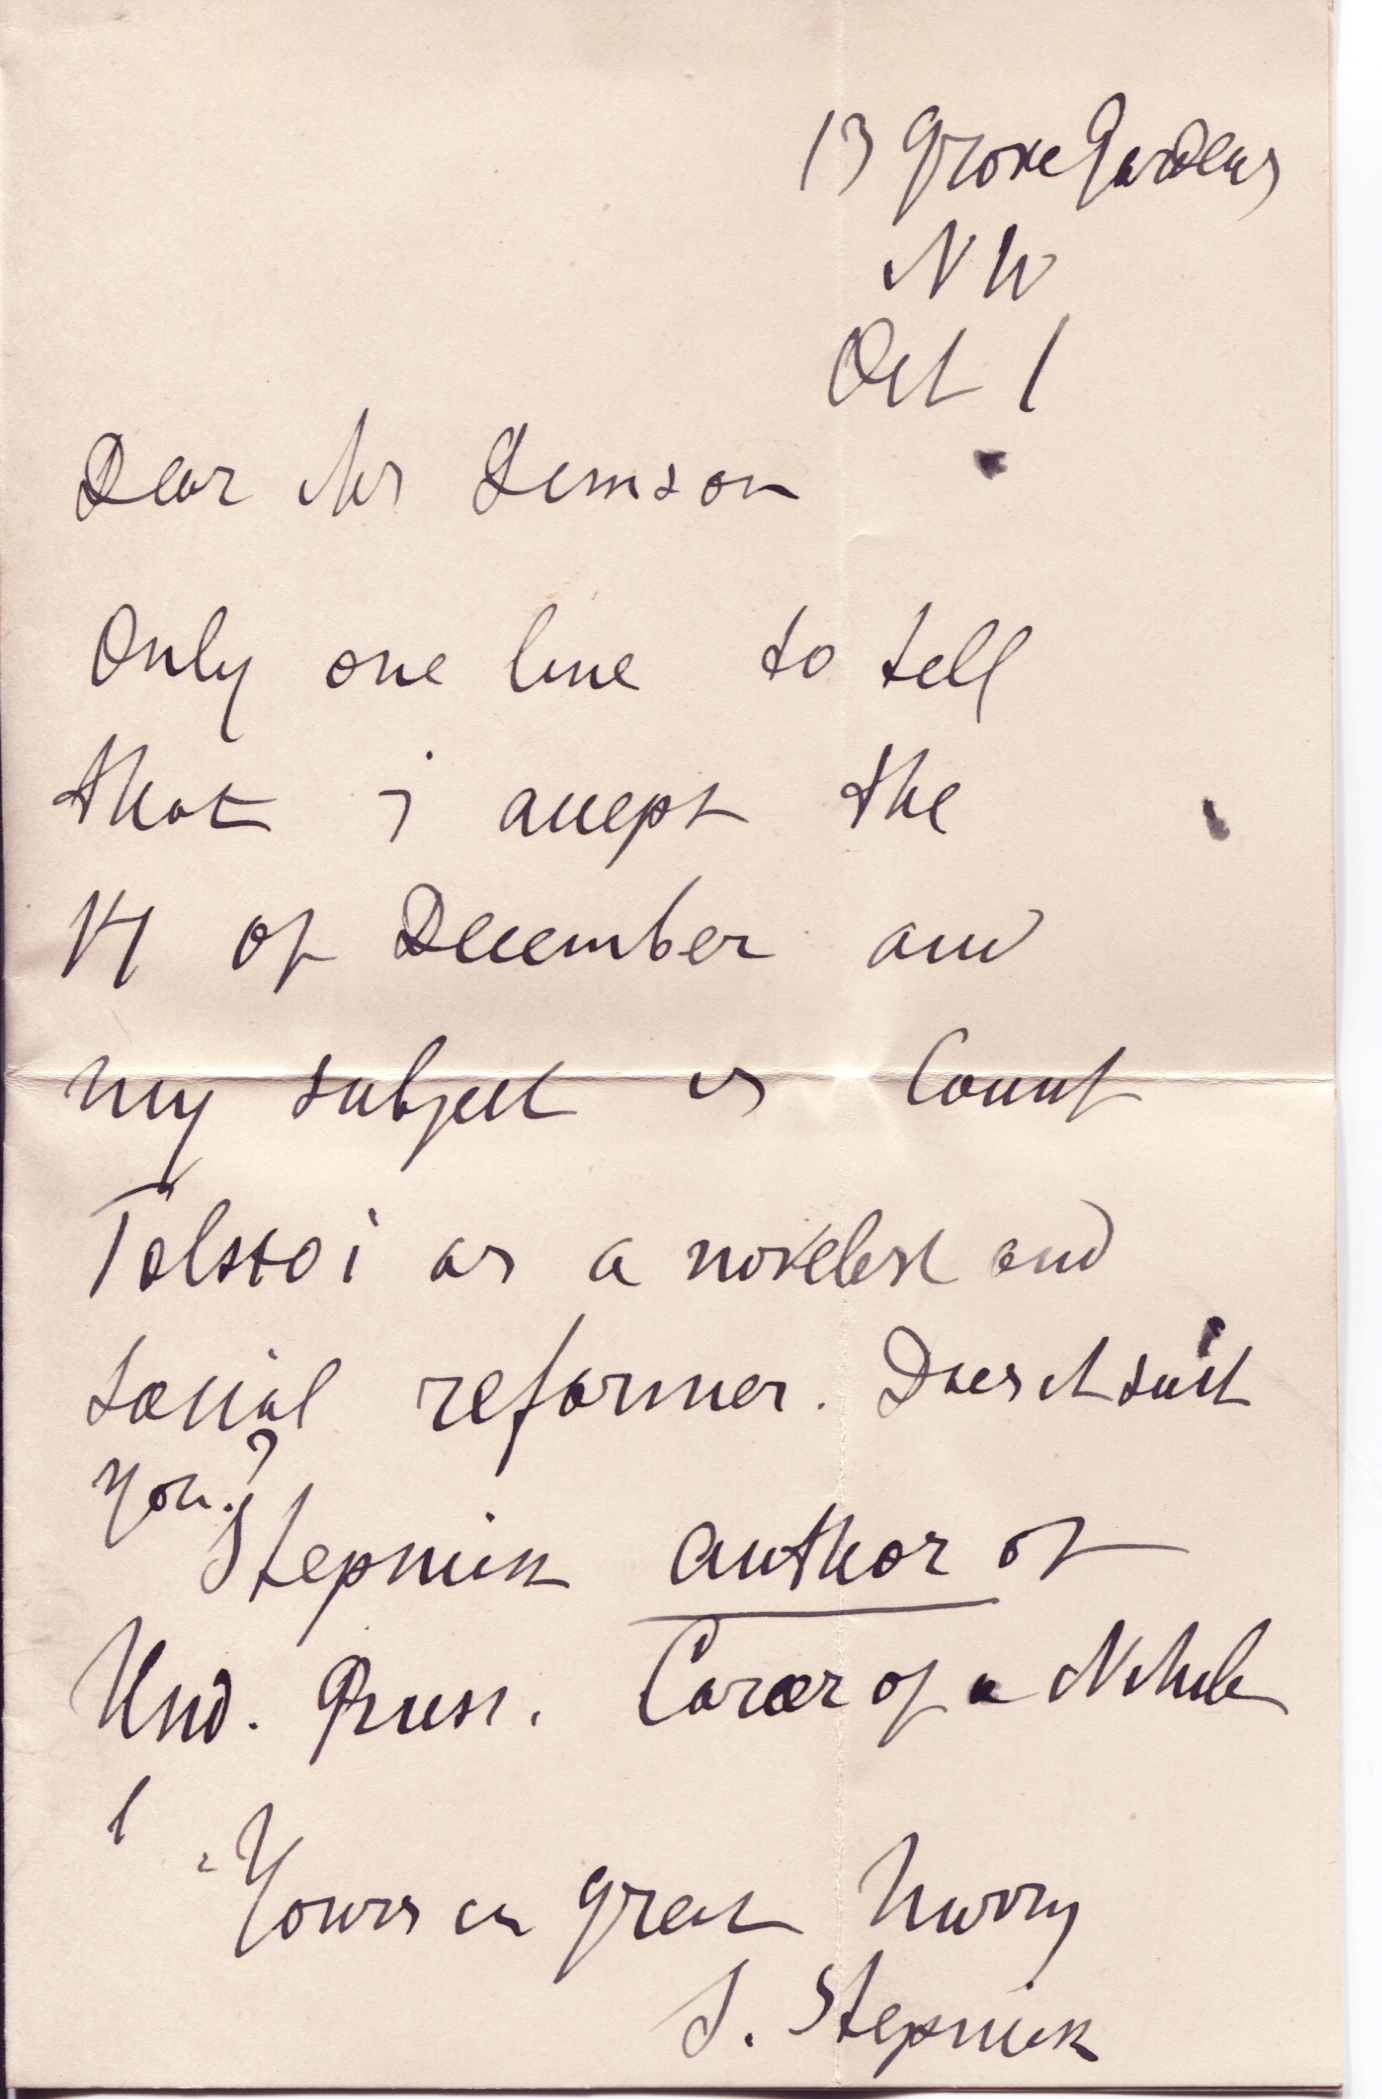 13 Grove Gardens
N W
Oct 1
Dear Mr
Only one line to tell
that i accept the
14 of December and
my subject is Count
Tolstoi as a novelist and
social reformer. Does it suit
you?
Stepniak author of
Und. Russ. Career of a Nihil
Yours in great hurry
S. Stepniak